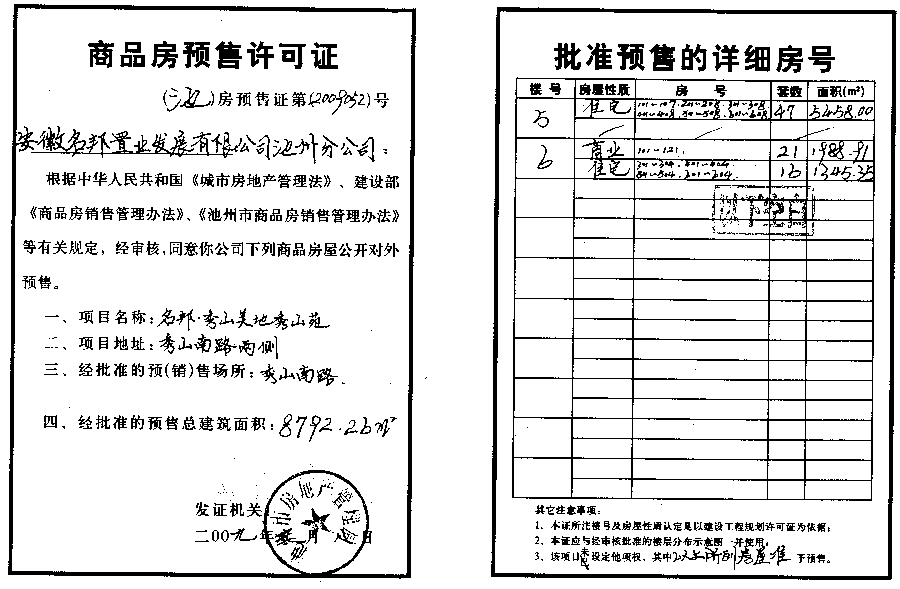 商品房预售许可证
(池)房预售证第(2009052)号
安徽名邦置业发展有限公司池州分公司:
根据中华人民共和国《城市房地产管理法》、建设部
《商品房销售管理办法》、《池州市商品房销售管理办法》
等有关规定,经审核,同意你公司下列商品房屋公开对外
预售。
一、项目名称:名邦·秀山美地秀山苑
二、项目地址:秀山南路两侧
三、经批准的预(销)售场所:秀山南路.
四、经批准的预售总建筑面积:8792.26m²
发证机关:
二00九年 月 日
市房地产管理局
批准预售的详细房号
楼号 房屋性质 房号 套数 面积(m²)
5 住宅 101-107.201-208.301-308 47 5458.00
401-408.501-508.601-608
6 商业 101-121. 21 1988.91
住宅 301-304.401-404 16 1345.35
501-504.601-604.
以下空白
其它注意事项:
1、本证所注楼号及房屋性质认定是以建设工程规划许可证为依据;
2、本证应与经审核批准的楼层分布示意图一并使用;
3、该项目未设定他项权,其中以上所列房屋准予预售。